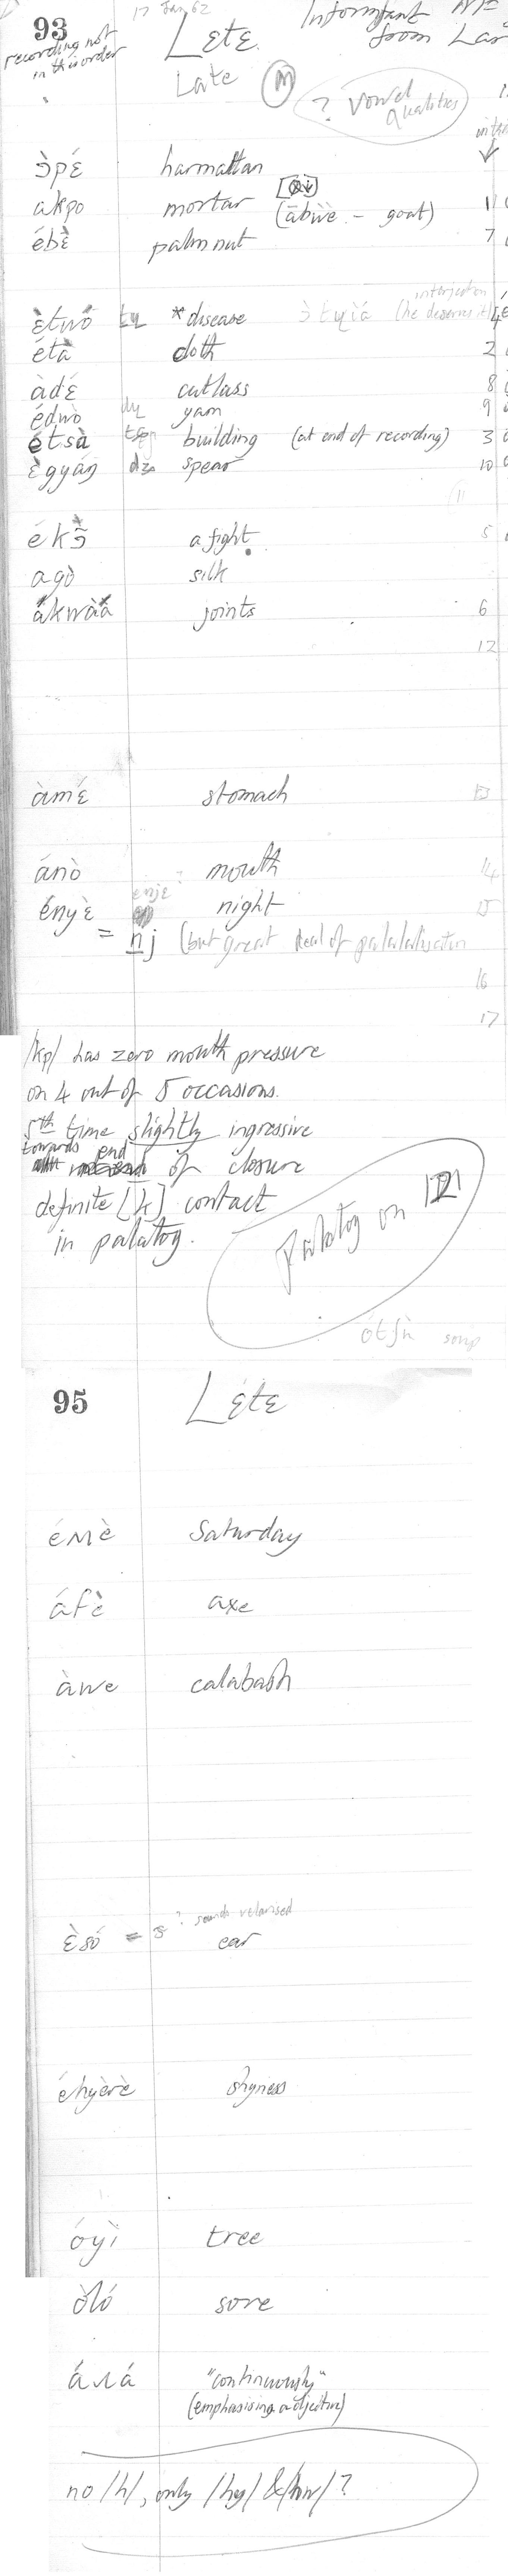 93 17 Jan 62 Informant
recording not Lɛtɛ. from Lar
in this order Late (M)
? Vowel
qualities
ɔ̀pɛ́ harmattan
akpo mortar (àbìrè - goat) 1
ébɛ̀ palm nut 7
interjection
ètwó tɥ *disease ɔ̀tɥìá (he deserves it) 4
étà cloth 2
àdɛ́ cutlass 8
édwò dɥ yam 9
étsà building (at end of recording) 3
ɛ̀gyáŋ spear 10
11
ékɔ̃̀ a fight 5
agò silk
ákwàá joints 6
12
àmɛ́ stomach 13
ánò mouth 14
ényɛ̀ enjɛ ? night 15
= nj (but great deal of palatalisation
16
17
/kp/ has zero mouth pressure
on 4 out of 5 occasions.
5th time slightly ingressive
towards end of closure
definite [k] contact
in palatog.
Palatog on |D|
ótʃìì soup
95 Lɛtɛ
éMè Saturday
áfè axe
àwe calabash
? sounds velarised
Èsó = s ear
éhyɛ̀rɛ̀ shyness
óyì tree
òló sore
áɹá "continuously"
(emphasising adjective)
no /h/, only /hy/ & /hw/ ?